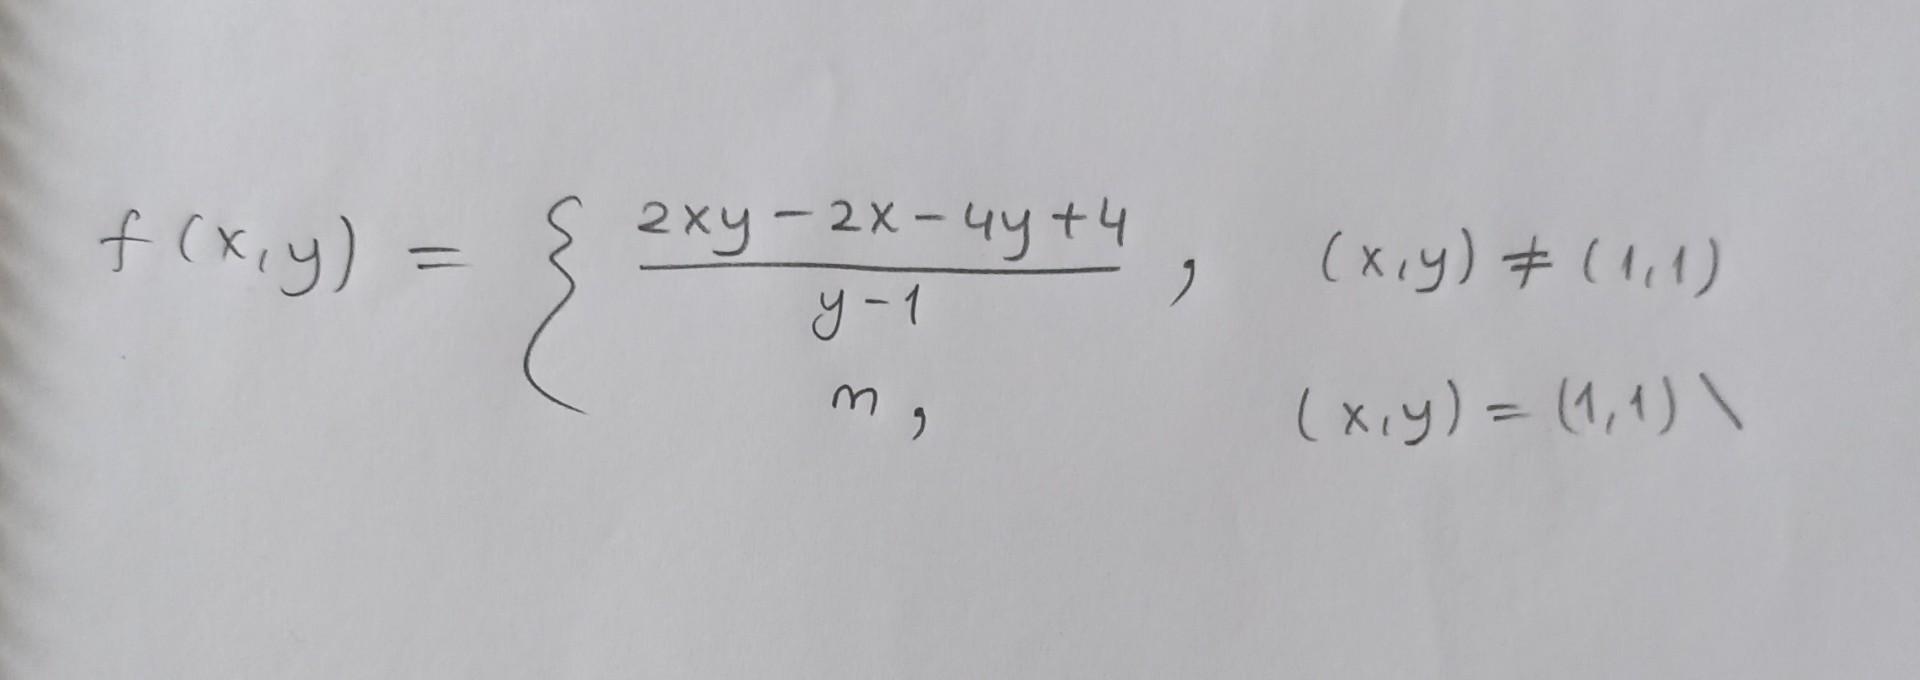 f(x,y) = { (2xy - 2x - 4y + 4)/(y - 1), (x,y) ≠ (1,1)
m, (x,y) = (1,1) \